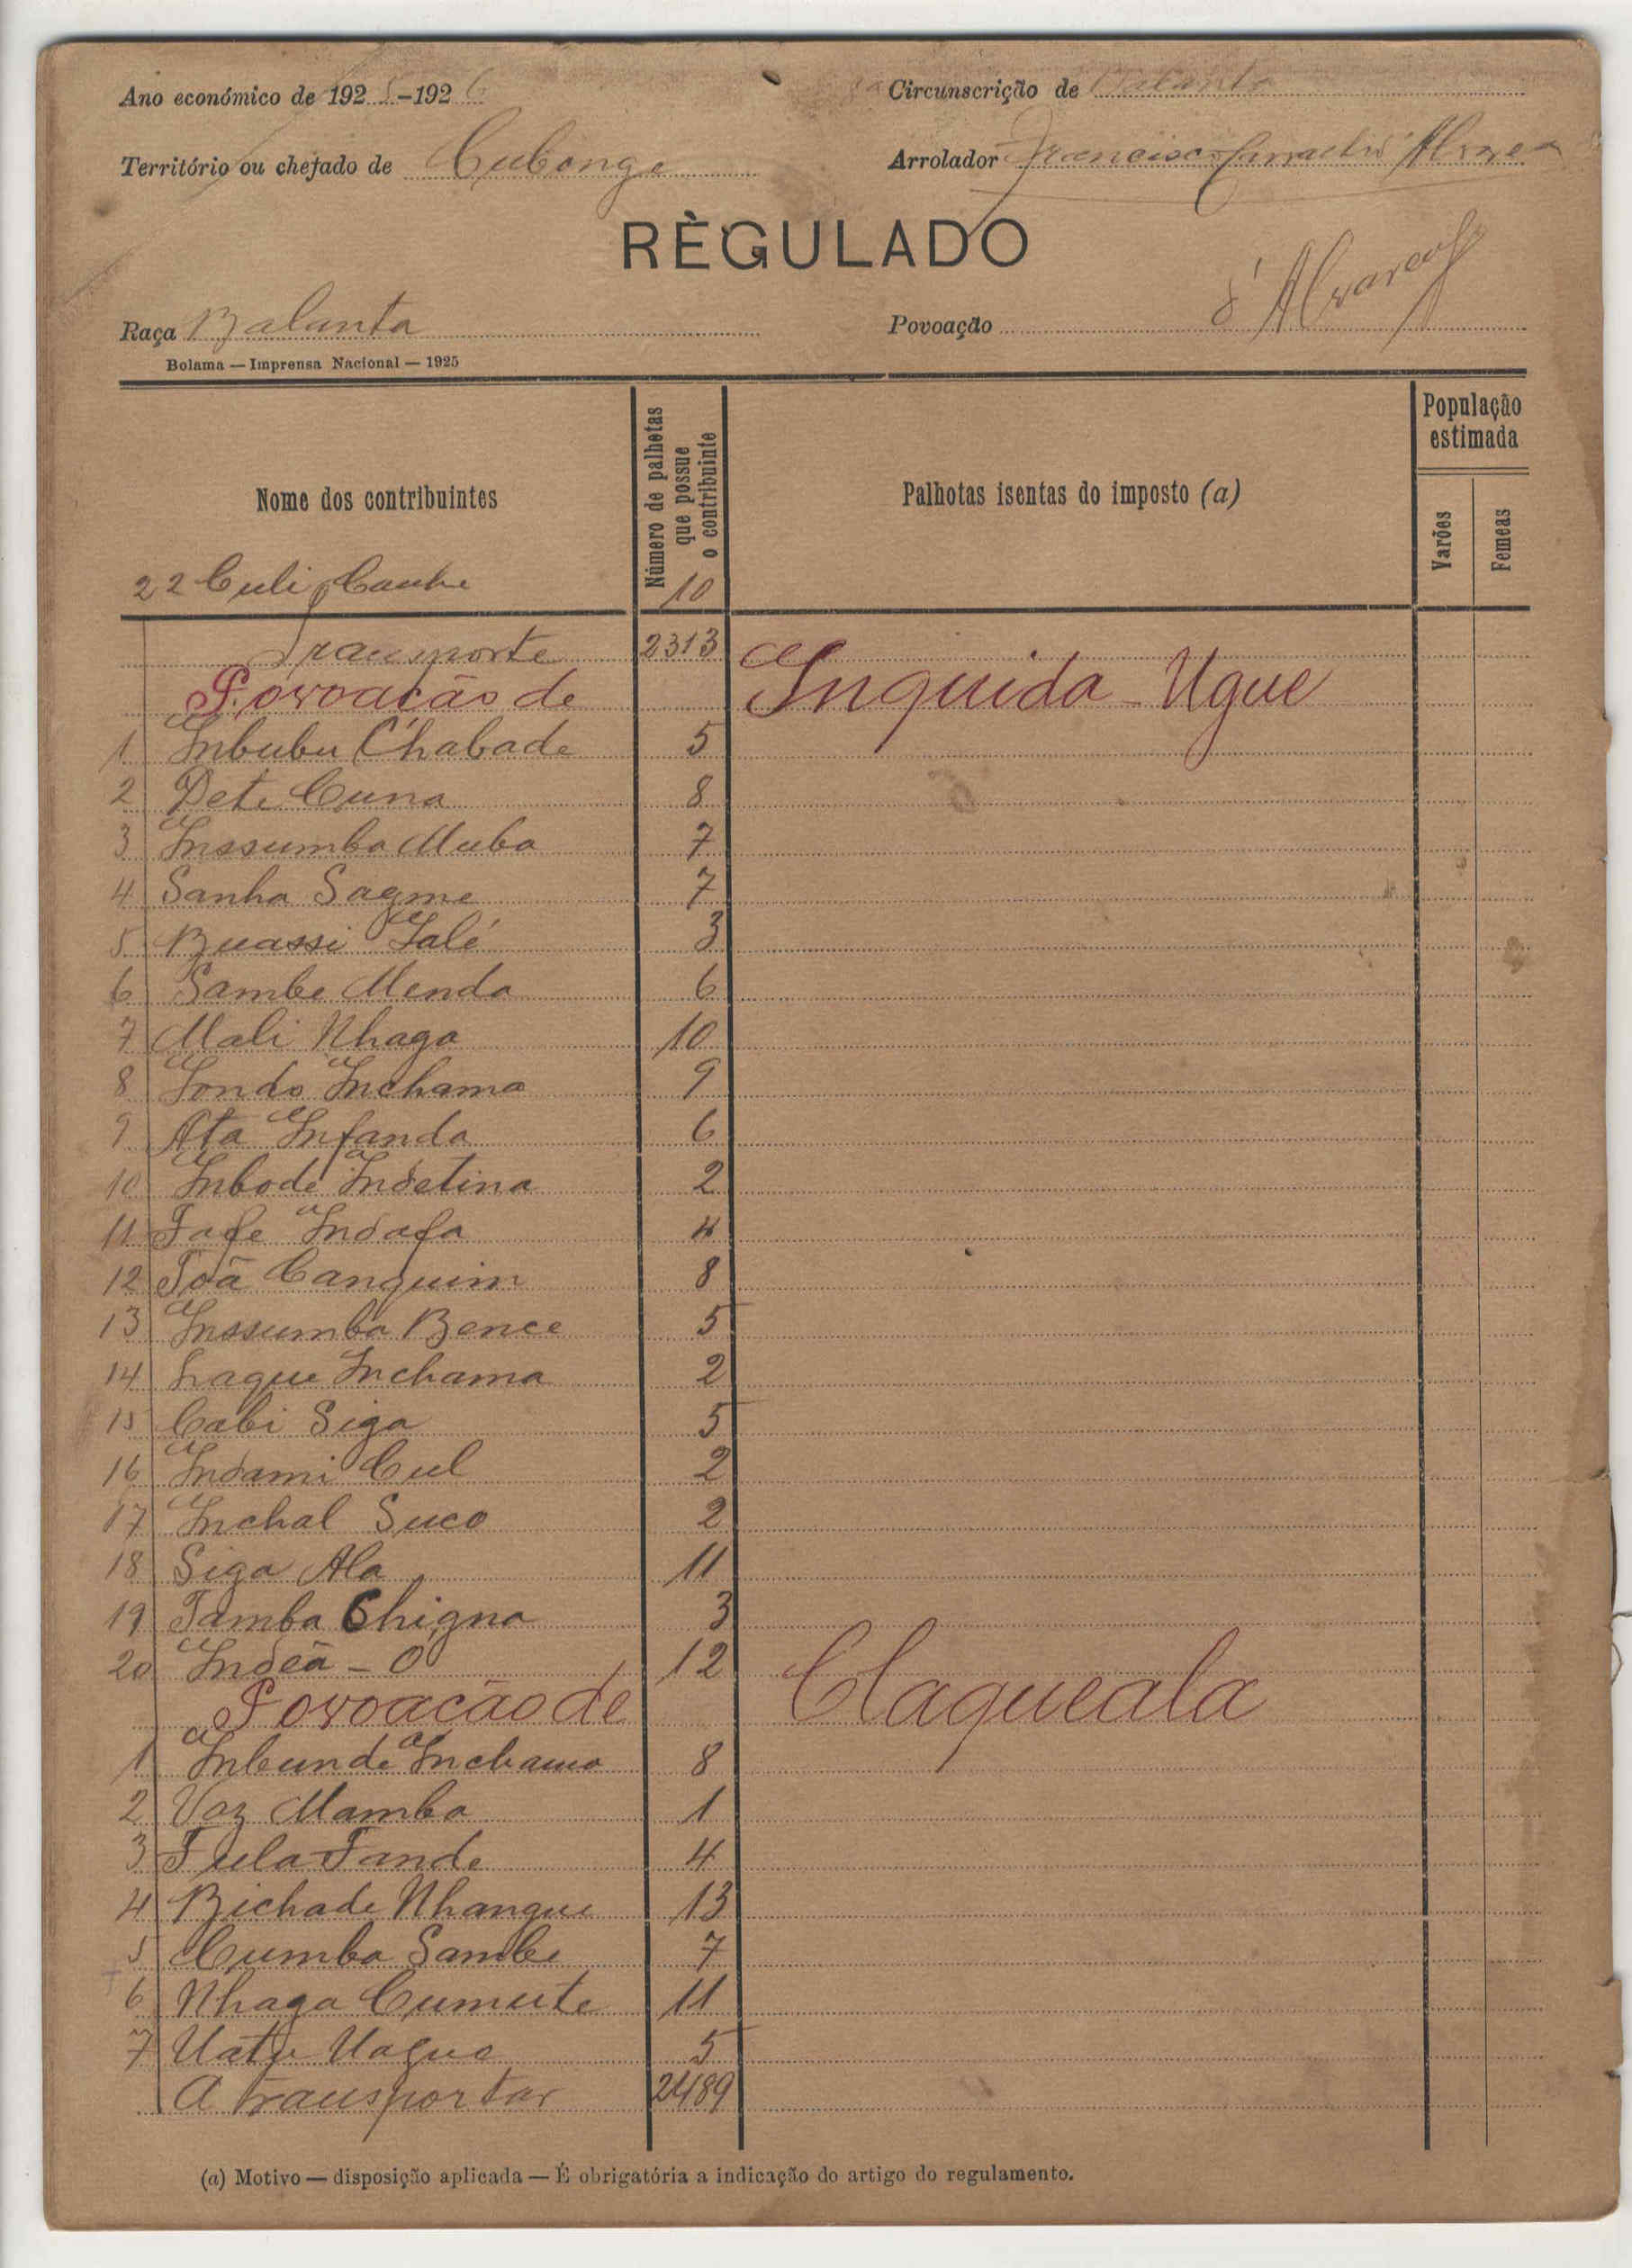 Ano económico de 1925-1926
Circunscrição de Balanta
Território ou chefado de Cubonge
Arrolador Francisco
RÈGULADO
d'Alvarenga
Raça Balanta
Povoação
Bolama — Imprensa Nacional — 1925
Nome dos contribuintes
Número de palhetas que possue o contribuinte
Palhotas isentas do imposto (a)
População estimada
Varões
Femeas
22 Culi Canhe 10
Transporte 2313
Povoação de Inquida - Ugue
1 Inbubu Chabade 5
2 Dete Cuna 8
3 Inssumba Muba 7
4 Sanha Sagme 7
5 Buassi Ialé 3
6 Sambe Menda 6
7 Mali Nhaga 10
8 Iondo Inchama 9
9 Ata Infanda 6
10 Inbodé Indetina 2
11 Fafe Indafa 4
12 Toã Canquim 8
13 Inssumba Bence 5
14 Laque Inchama 2
15 Cabi Siga 5
16 Indami Cul 2
17 Inchal Suco 2
18 Siga Ala 11
19 Tamba Chigna 3
20 Indeã - O 12
Povoacão de Claqueala
1 Inbunde Inchama 8
2 Voz Mamba 1
3 Fula Fande 4
4 Bichade Nhangue 13
5 Cumba Sambe 7
6 Nhaga Cumute 11
7 Uatu 5
A transportar 2489
(a) Motivo — disposição aplicada — É obrigatória a indicação do artigo do regulamento.